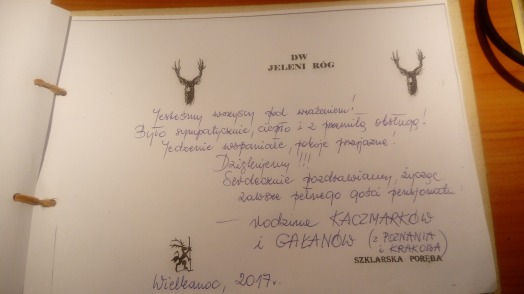 DW
JELENI RÓG
Jesteśmy wszyscy pod wrażeniem!
Było sympatycznie, ciepło i z przemiłą obsługą!
Jedzenie wspaniałe, pokoje przyjazne!
Dziękujemy!!!
Serdecznie pozdrawiamy, życząc
zawsze pełnego gości pensjonatu
— Rodzina KACZMARKÓW
i GAŁANÓW (z POZNANIA
i KRAKOWA)
SZKLARSKA PORĘBA
Wielkanoc, 2017.